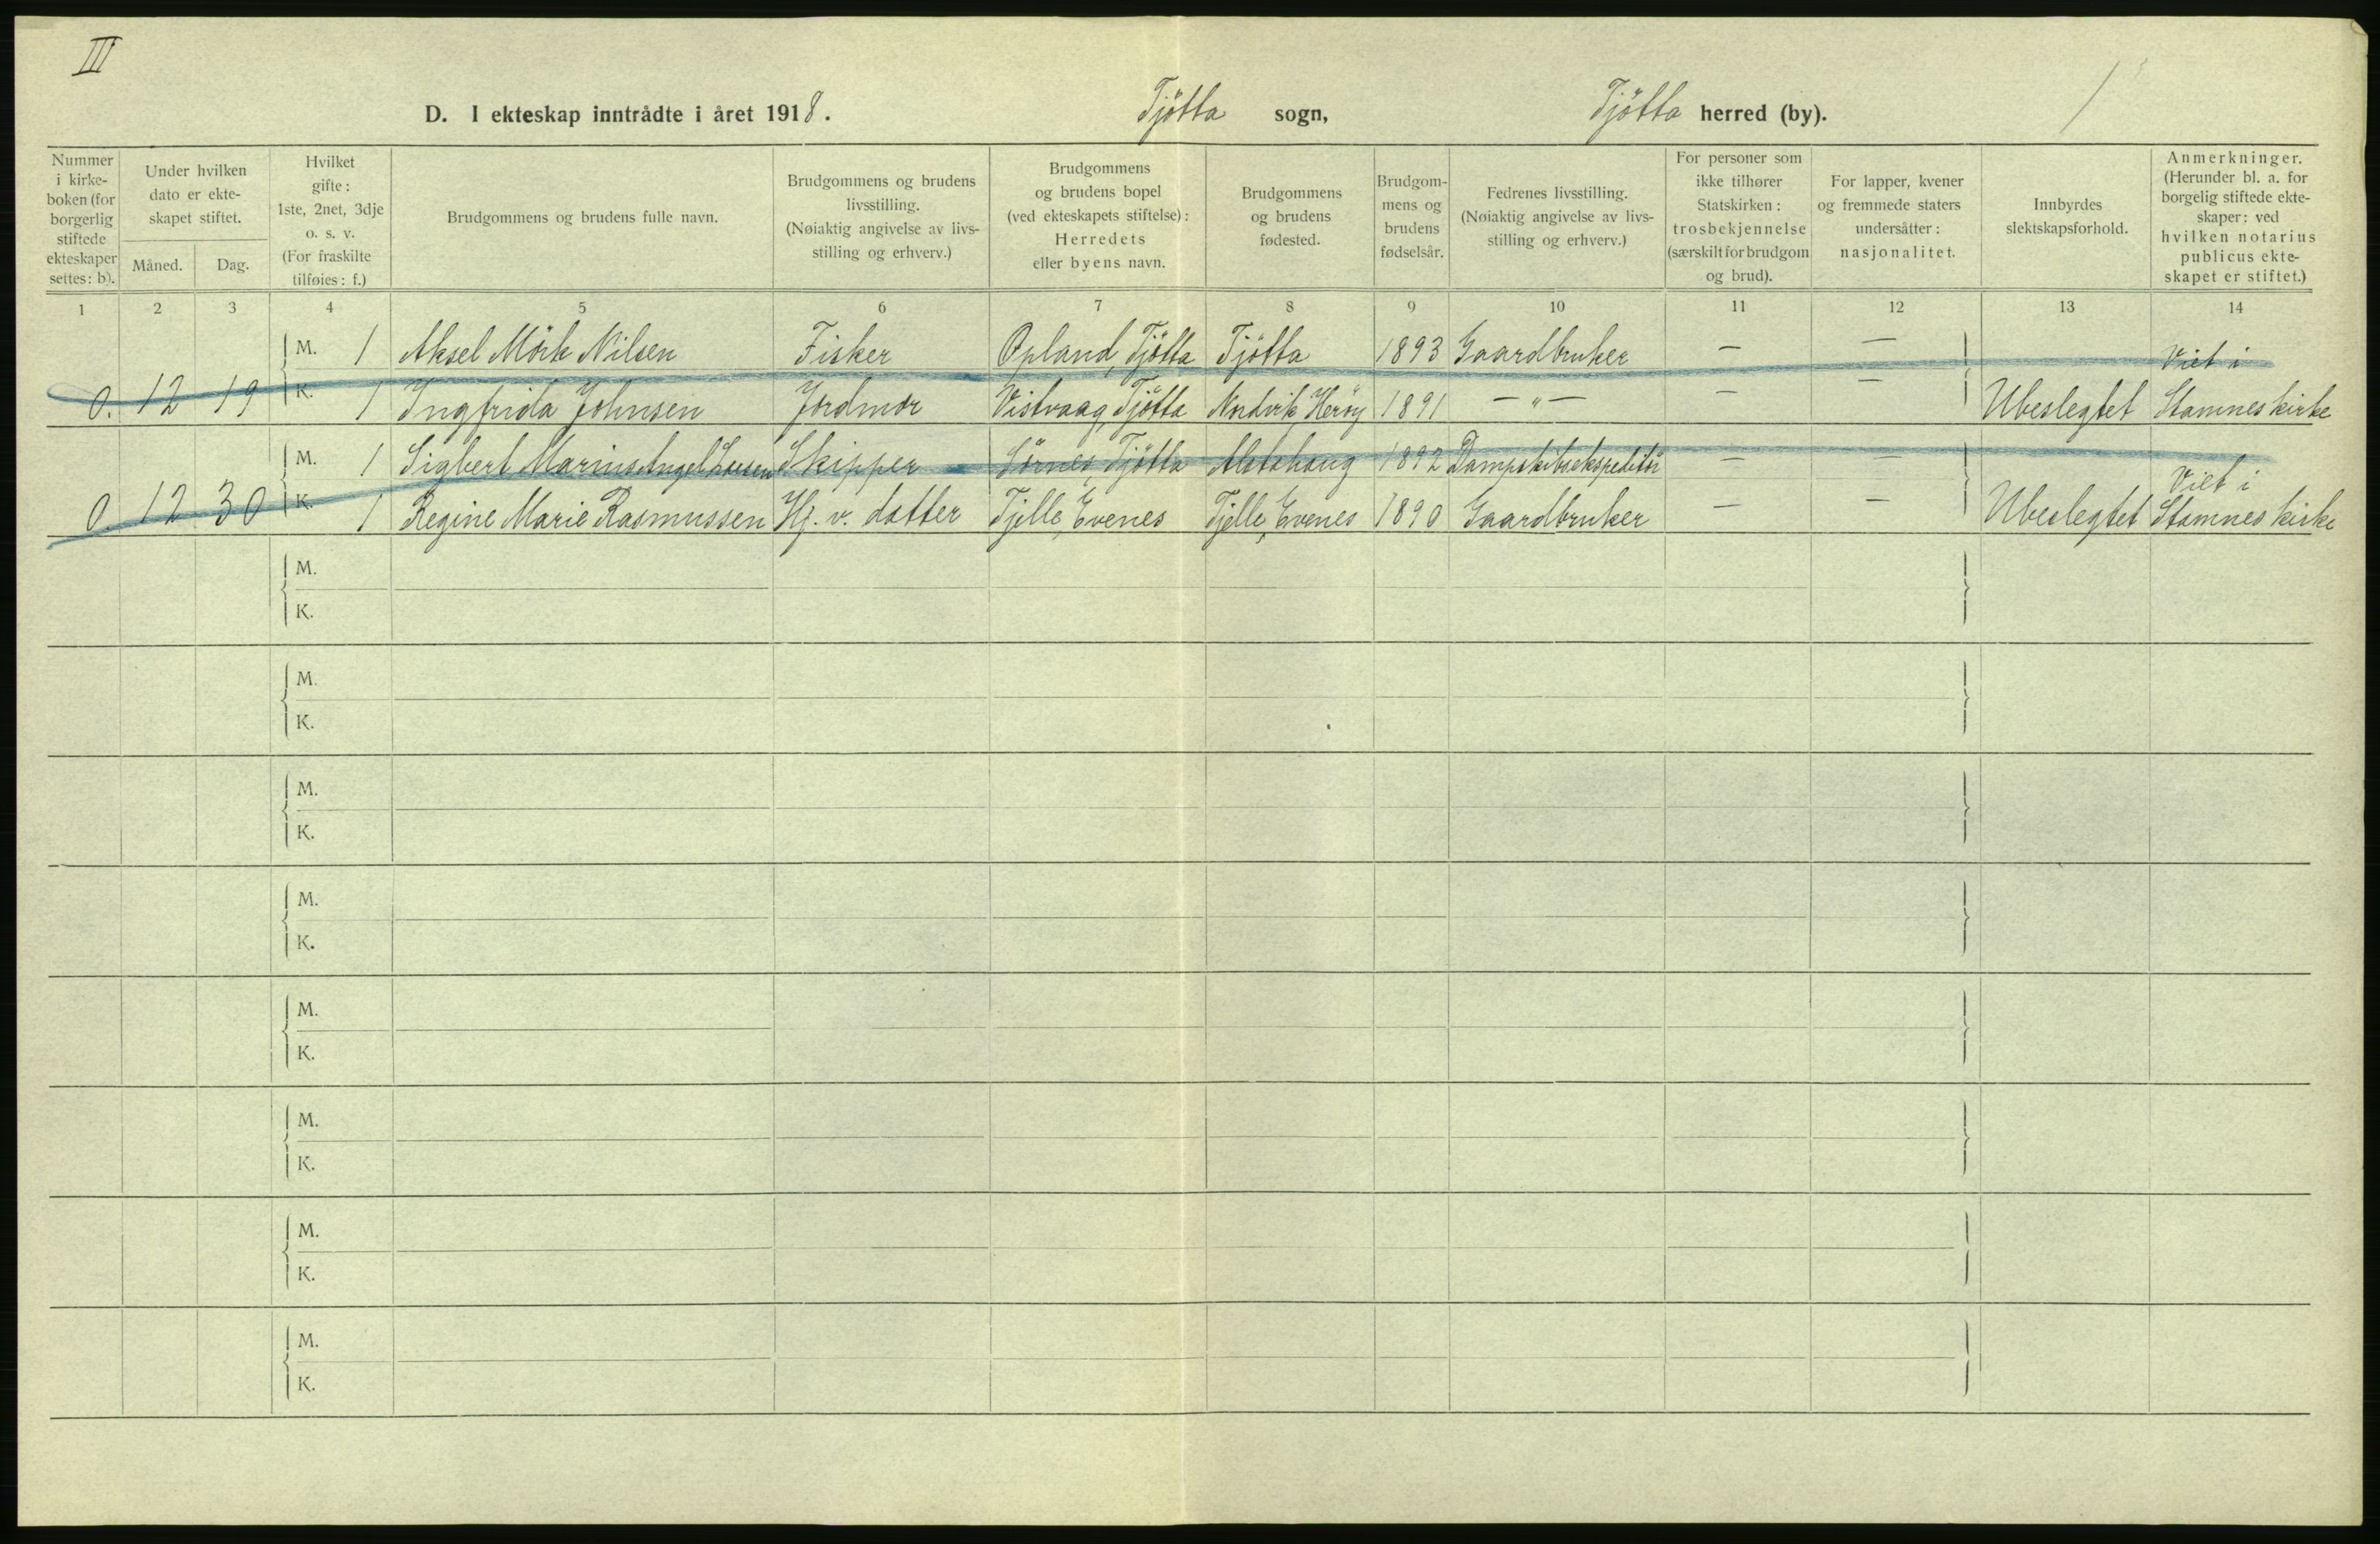 III
D. I ekteskap inntrådte i året 1918. Tjøtta sogn, Tjøtta herred (by). 1
Nummer i kirkeboken (for borgerlig stiftede ekteskaper settes: b).
Under hvilken dato er ekteskapet stiftet.
Måned. Dag.
Hvilket gifte: 1ste, 2net, 3dje o. s. v. (For fraskilte tilføies: f.)
Brudgommens og brudens fulle navn.
Brudgommens og brudens livsstilling. (Nøiaktig angivelse av livsstilling og erhverv.)
Brudgommens og brudens bopel (ved ekteskapets stiftelse): Herredets eller byens navn.
Brudgommens og brudens fødested.
Brudgommens og brudens fødselsår.
Fedrenes livsstilling. (Nøiaktig angivelse av livsstilling og erhverv.)
For personer som ikke tilhører Statskirken: trosbekjennelse (særskilt for brudgom og brud).
For lapper, kvener og fremmede staters undersåtter: nasjonalitet.
Innbyrdes slektskapsforhold.
Anmerkninger. (Herunder bl. a. for borgelig stiftede ekteskaper: ved hvilken notarius publicus ekteskapet er stiftet.)
1 2 3 4 5 6 7 8 9 10 11 12 13 14
M. 1 Aksel Mörk Nilsen Fisker Opland, Tjøtta Tjøtta 1893 Gaardbruker — — Viet i
0. 12 19 K. 1 Ingfrida Johnsen Jordmor Vistvaag, Tjøtta Nordvik, Herøy 1891 — " — — — Ubeslegtet Stamnes kirke
M. 1 Sigbert Marius Angel Larsen Skipper Sörnes, Tjøtta Alstahaug 1892 Dampskibsekspeditör — — Viet i
0 12 30 K. 1 Regine Marie Rasmussen Hj. v. datter Tjelle, Evenes Tjelle, Evenes 1890 Gaardbruker — — Ubeslegtet Stamnes kirke
M.
K.
M.
K.
M.
K.
M.
K.
M.
K.
M.
K.
M.
K.
M.
K.